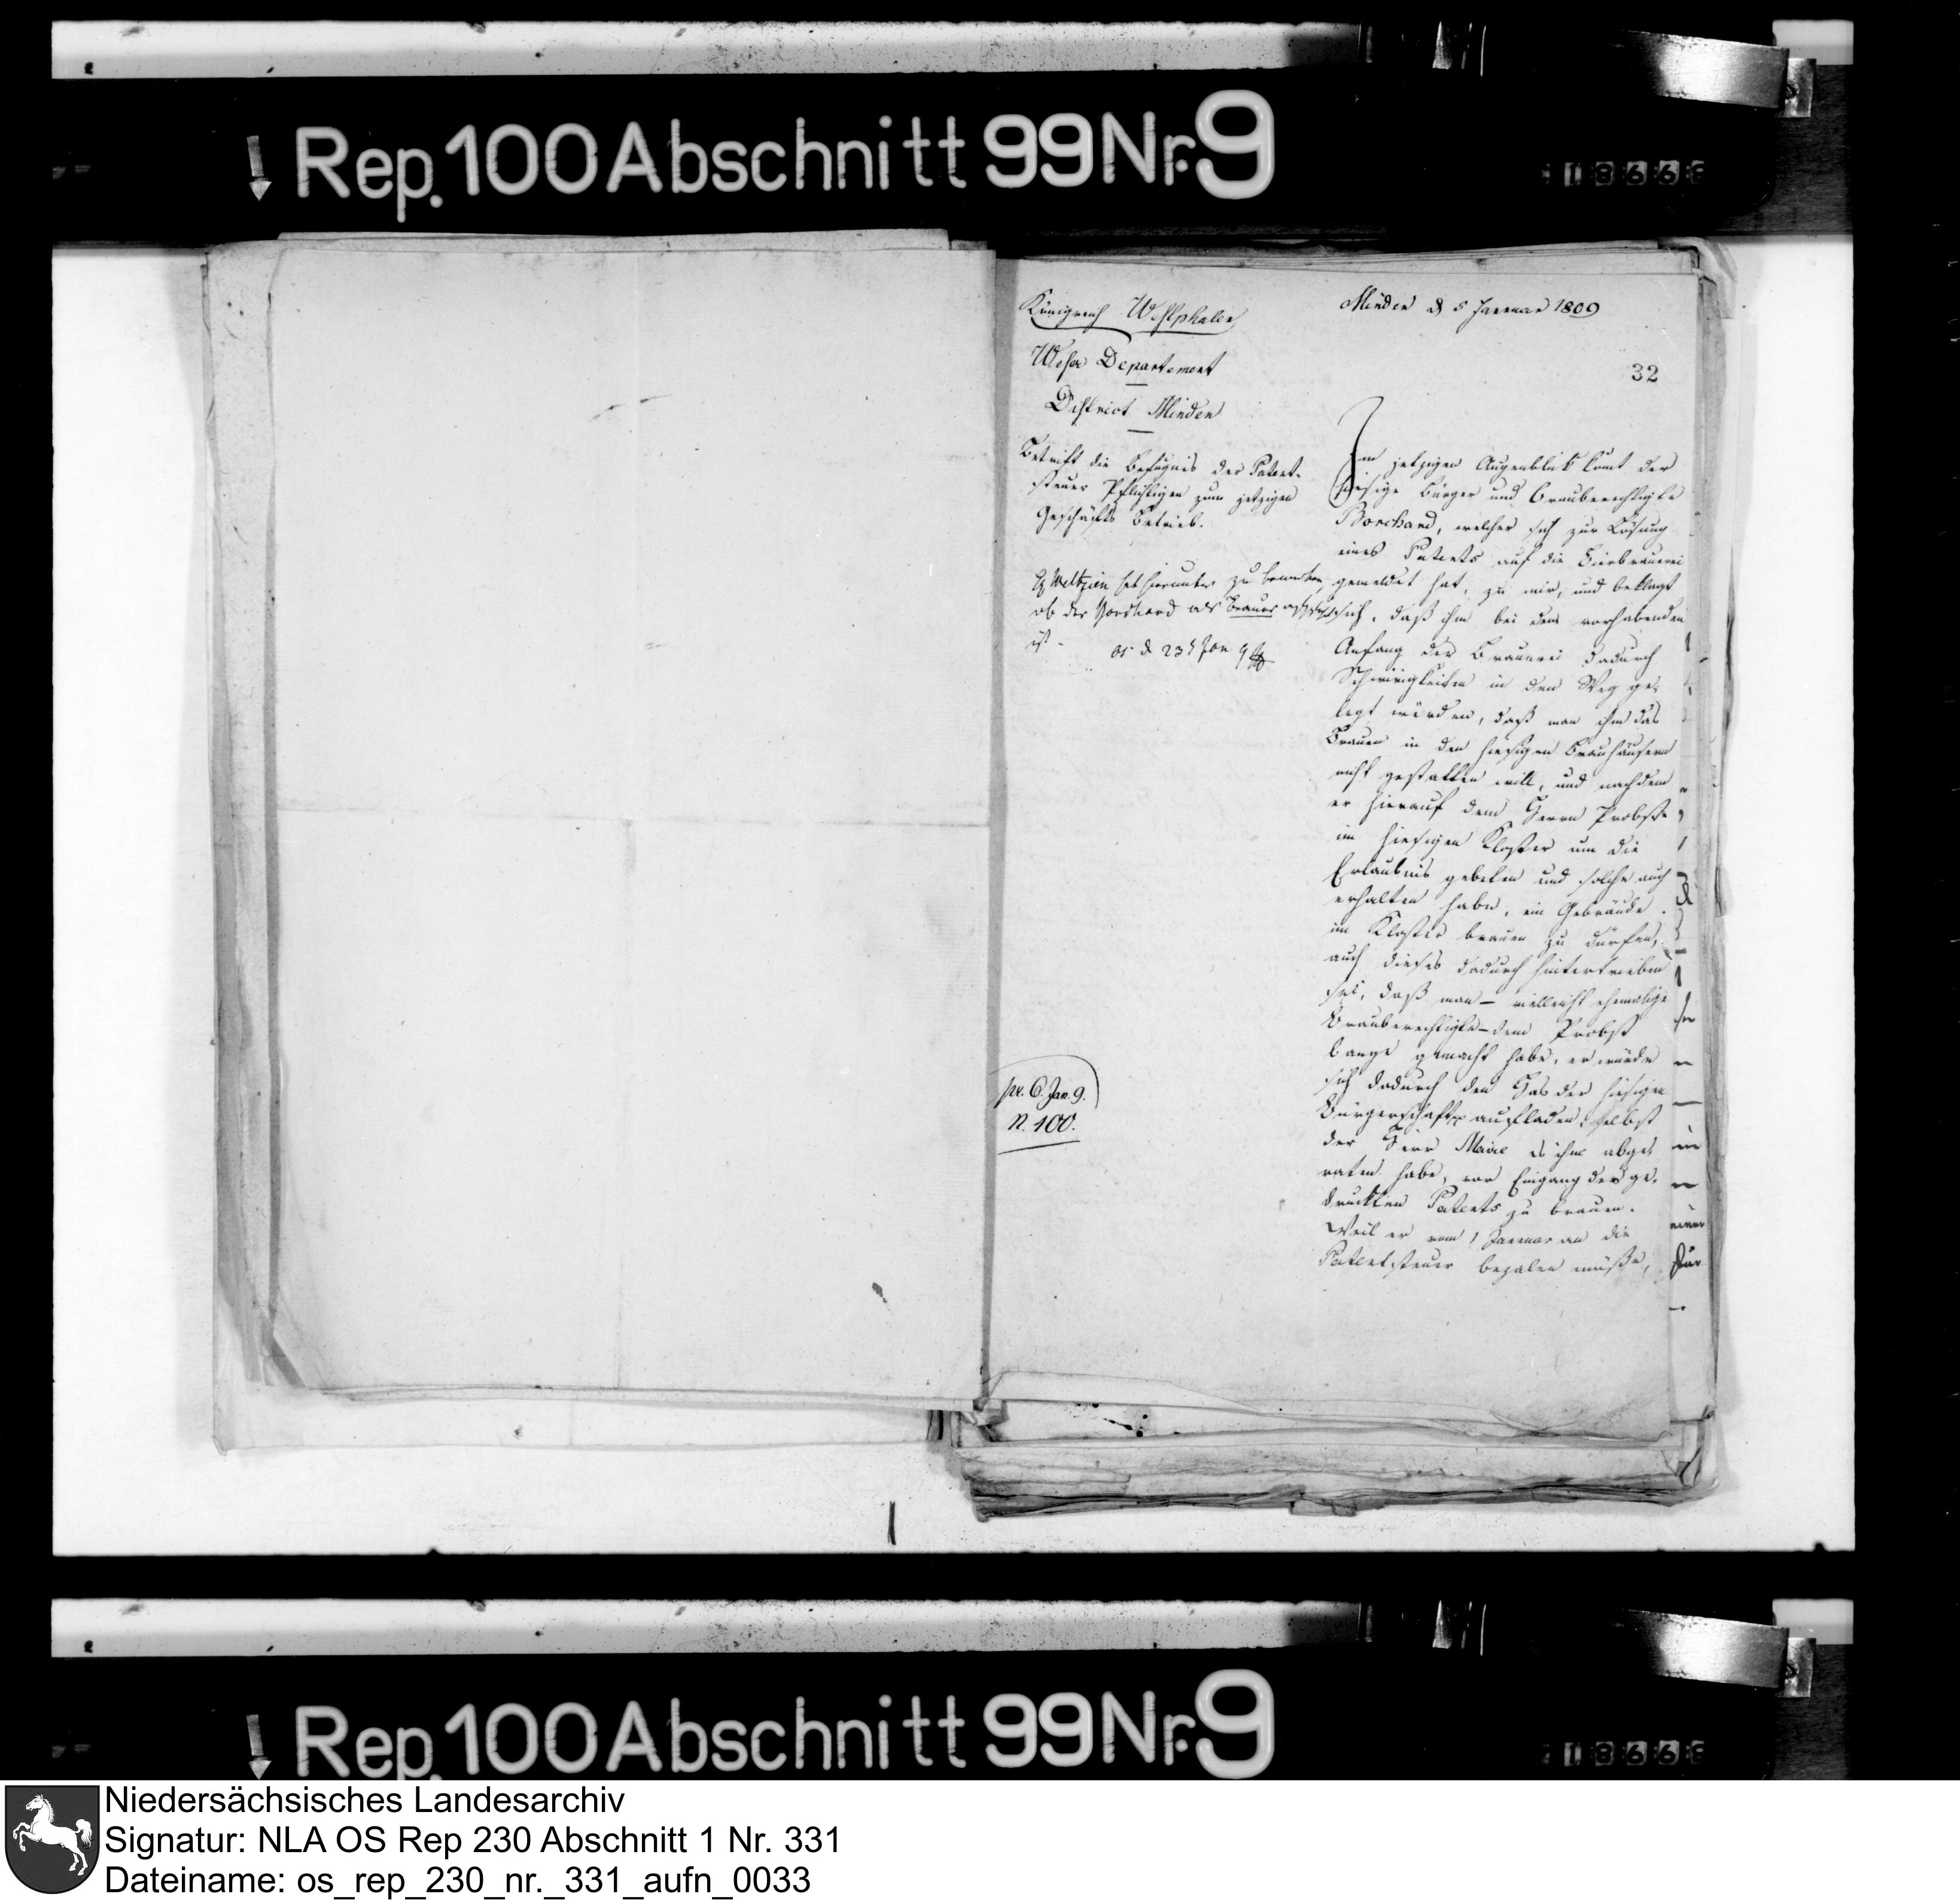 Rep. 100 Abschnitt 99 Nr. 9
18668
Königreich Westphalen
Weser Departement
District Minden
Minden d 5 Januar 1809
32
Betrift die Befugnis der Patent-
steuer Pflichtigen zum jetzigen
Geschäfts Betrieb.
Weltzien hat hierunter zu
ob der Borchard als Brauer
ist.
Os d 23t Jan 9
pr. 6. Jan. 9.
N. 100.
Im jetzigen Augenblick komt der
hiesige Bürger und Brauberechtigte
Borchard, welcher sich zur Lösung
eines Patents auf die Bierbrauerei
gemeldet hat, zu mir, und beklagt
sich, daß ihm bei dem vorhabenden
Anfang der Brauerei dadurch
Schwirigkeiten in den Weg ge-
legt würden, daß man ihm das
Brauen in den hiesigen Brauhäusern
nicht gestatten will, und nachdem
er hierauf dem Herrn Probste
im hiesigen Kloster um die
Erlaubnis gebeten und solche auch
erhalten habe, ein Gebräude
im Kloster brauen zu dürfen,
auch dieses dadurch hintertrieben
sei, daß man – vielleicht ehemalige
Brauberechtigte – dem Probst
bange gemacht habe, er würde
sich dadurch den Has der hiesigen
Bürgerschaft aufladen, selbst
der Herr Maire es ihm abge-
raten habe, vor Eingang des ge-
druckten Patents zu brauen.
Weil er vom 1 Januar an die
Patentsteuer bezalen müße,
Rep. 100 Abschnitt 99 Nr. 9
18668
Niedersächsisches Landesarchiv
Signatur: NLA OS Rep 230 Abschnitt 1 Nr. 331
Dateiname: os_rep_230_nr._331_aufn_0033